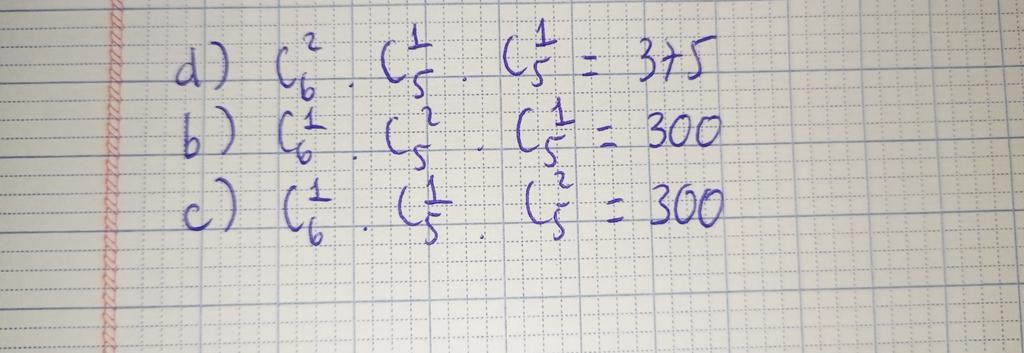 d) C₆² . C₅¹ . C₅¹ = 375
b) C₆¹ . C₅² . C₅¹ = 300
c) C₆¹ . C₅¹ . C₅² = 300